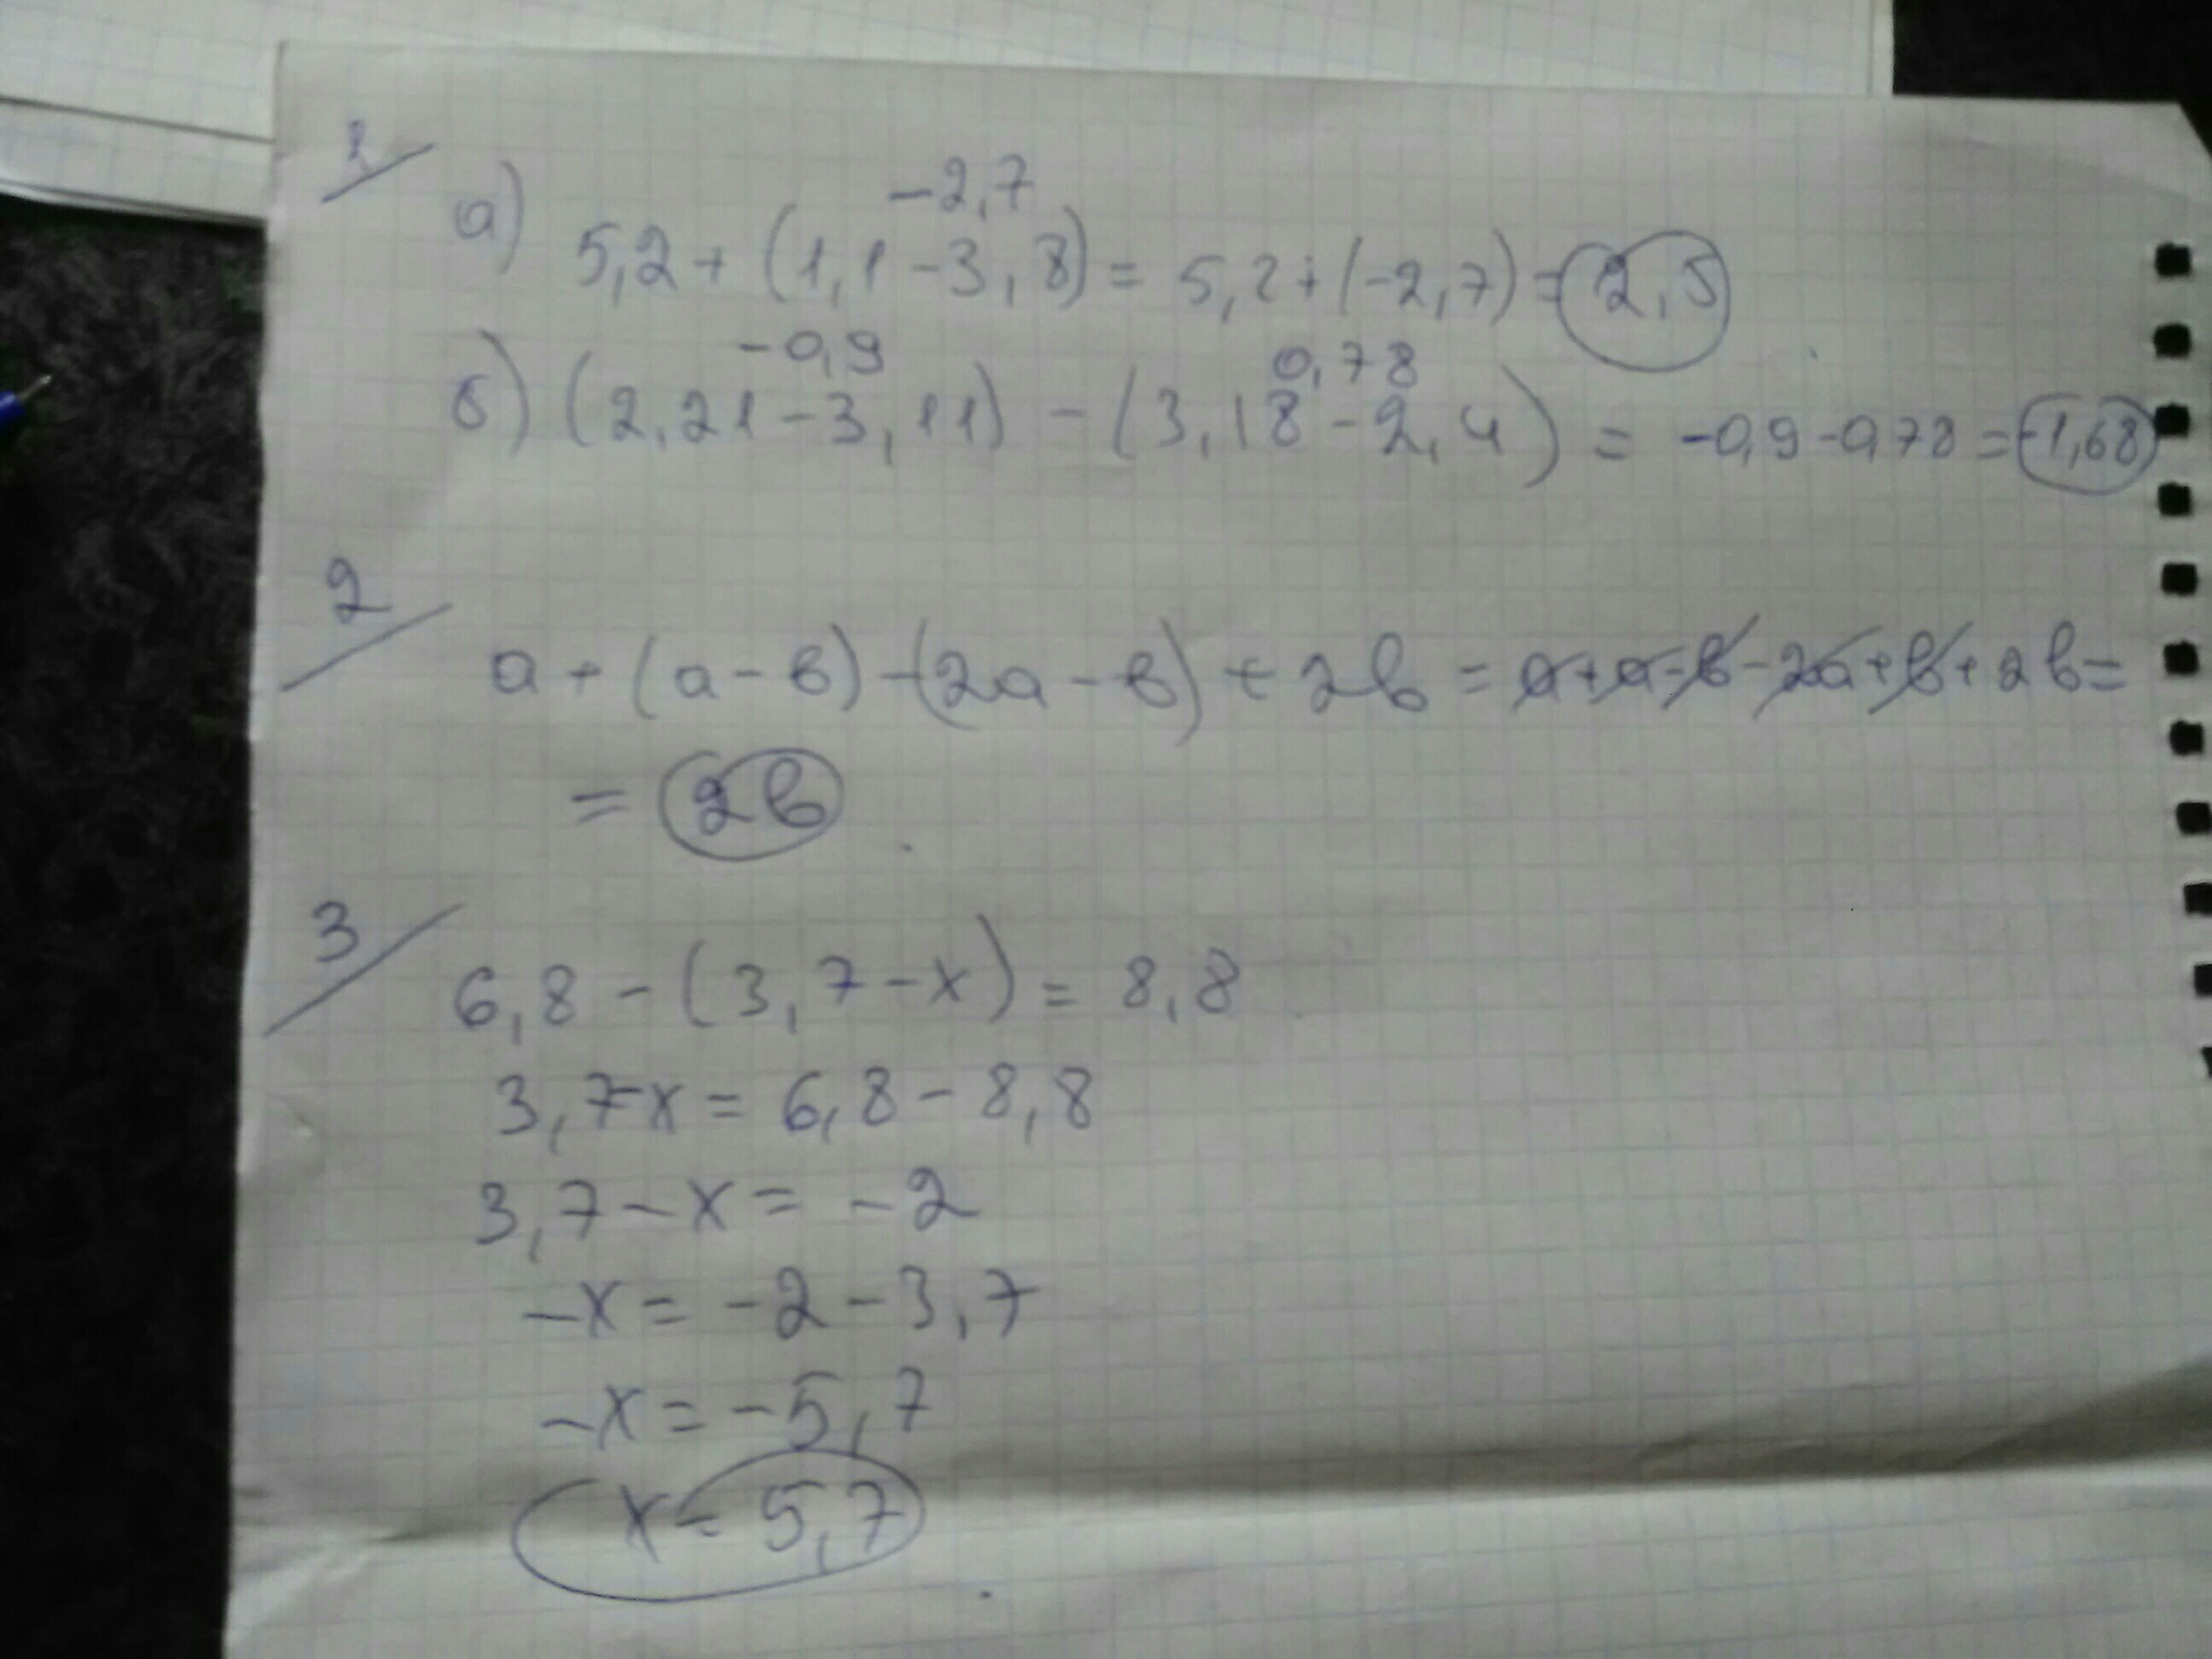 1
-2,7
а) 5,2 + (1,1 - 3,8) = 5,2 + (-2,7) = 2,5
-0,9 0,78
б) (2,21 - 3,11) - (3,18 - 2,4) = -0,9 - 0,78 = -1,68
2
a + (a - в) - (2a - в) + 2в = a + a - в - 2a + в + 2в =
= 2в
3
6,8 - (3,7 - x) = 8,8
3,7 - x = 6,8 - 8,8
3,7 - x = -2
-x = -2 - 3,7
-x = -5,7
x = 5,7